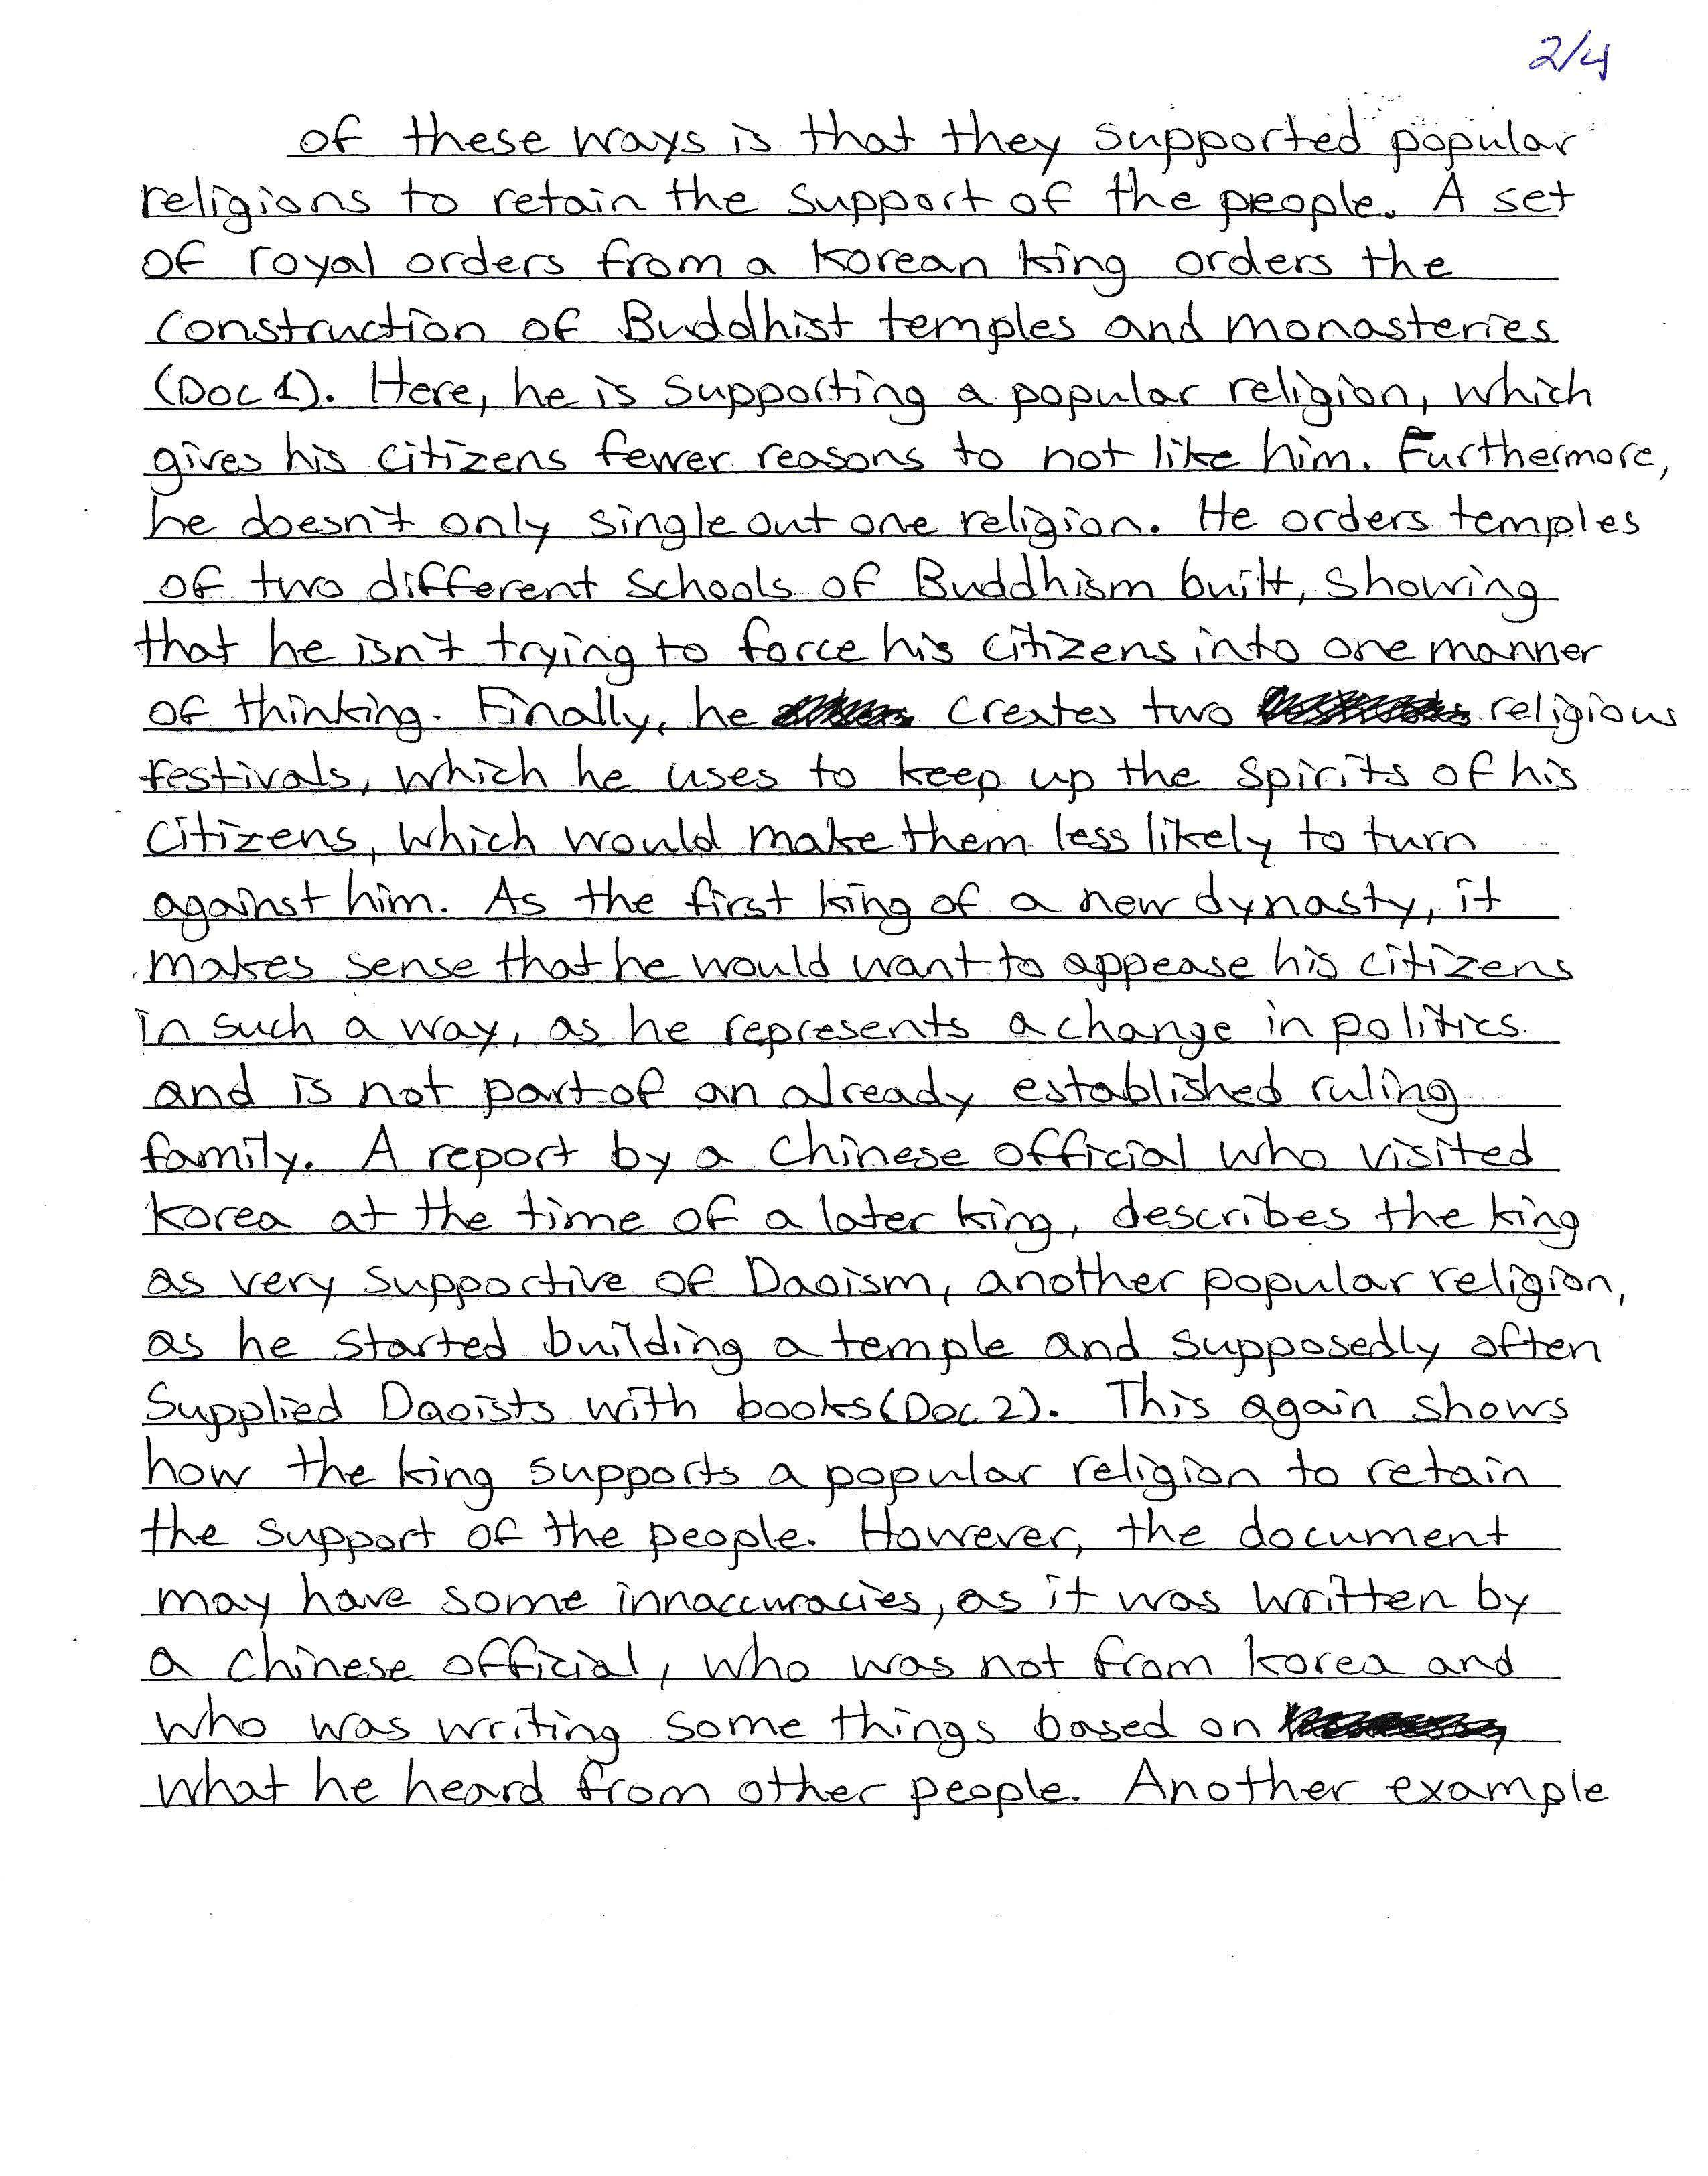 2/4
of these ways is that they supported popular
religions to retain the support of the people. A set
of royal orders from a Korean king orders the
construction of Buddhist temples and monasteries
(Doc 1). Here, he is supporting a popular religion, which
gives his citizens fewer reasons to not like him. Furthermore,
he doesn't only single out one religion. He orders temples
of two different schools of Buddhism built, showing
that he isn't trying to force his citizens into one manner
of thinking. Finally, he creates two religious
festivals, which he uses to keep up the spirits of his
citizens, which would make them less likely to turn
against him. As the first king of a new dynasty, it
makes sense that he would want to appease his citizens
in such a way, as he represents a change in politics
and is not part of an already established ruling
family. A report by a Chinese official who visited
Korea at the time of a later king, describes the king
as very supportive of Daoism, another popular religion,
as he started building a temple and supposedly often
supplied Daoists with books (Doc 2). This again shows
how the king supports a popular religion to retain
the support of the people. However, the document
may have some innaccuracies, as it was written by
a Chinese official, who was not from Korea and
who was writing some things based on
what he heard from other people. Another example